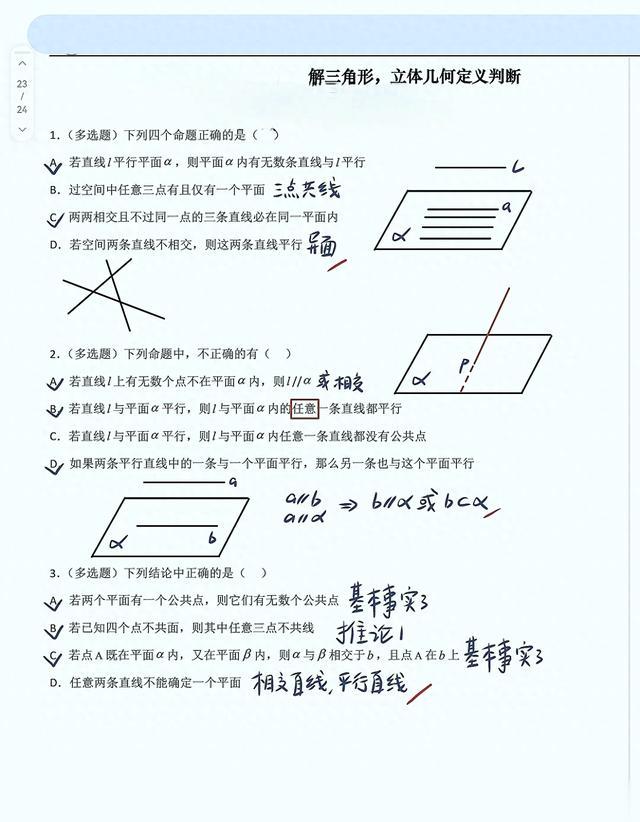 23
/
24
解三角形，立体几何定义判断
1.（多选题）下列四个命题正确的是（ ）
A. 若直线l平行平面α，则平面α内有无数条直线与l平行
B. 过空间中任意三点有且仅有一个平面 三点共线
C. 两两相交且不过同一点的三条直线必在同一平面内
D. 若空间两条直线不相交，则这两条直线平行 异面
L
a
α
2.（多选题）下列命题中，不正确的有（ ）
A. 若直线l上有无数个点不在平面α内，则l//α 或相交
B. 若直线l与平面α平行，则l与平面α内的任意一条直线都平行
C. 若直线l与平面α平行，则l与平面α内任意一条直线都没有公共点
D. 如果两条平行直线中的一条与一个平面平行，那么另一条也与这个平面平行
P
α
a
α b
a//b
a//α ⇒ b//α 或 b⊂α
3.（多选题）下列结论中正确的是（ ）
A. 若两个平面有一个公共点，则它们有无数个公共点 基本事实3
B. 若已知四个点不共面，则其中任意三点不共线 推论1
C. 若点A既在平面α内，又在平面β内，则α与β相交于b，且点A在b上 基本事实3
D. 任意两条直线不能确定一个平面 相交直线，平行直线